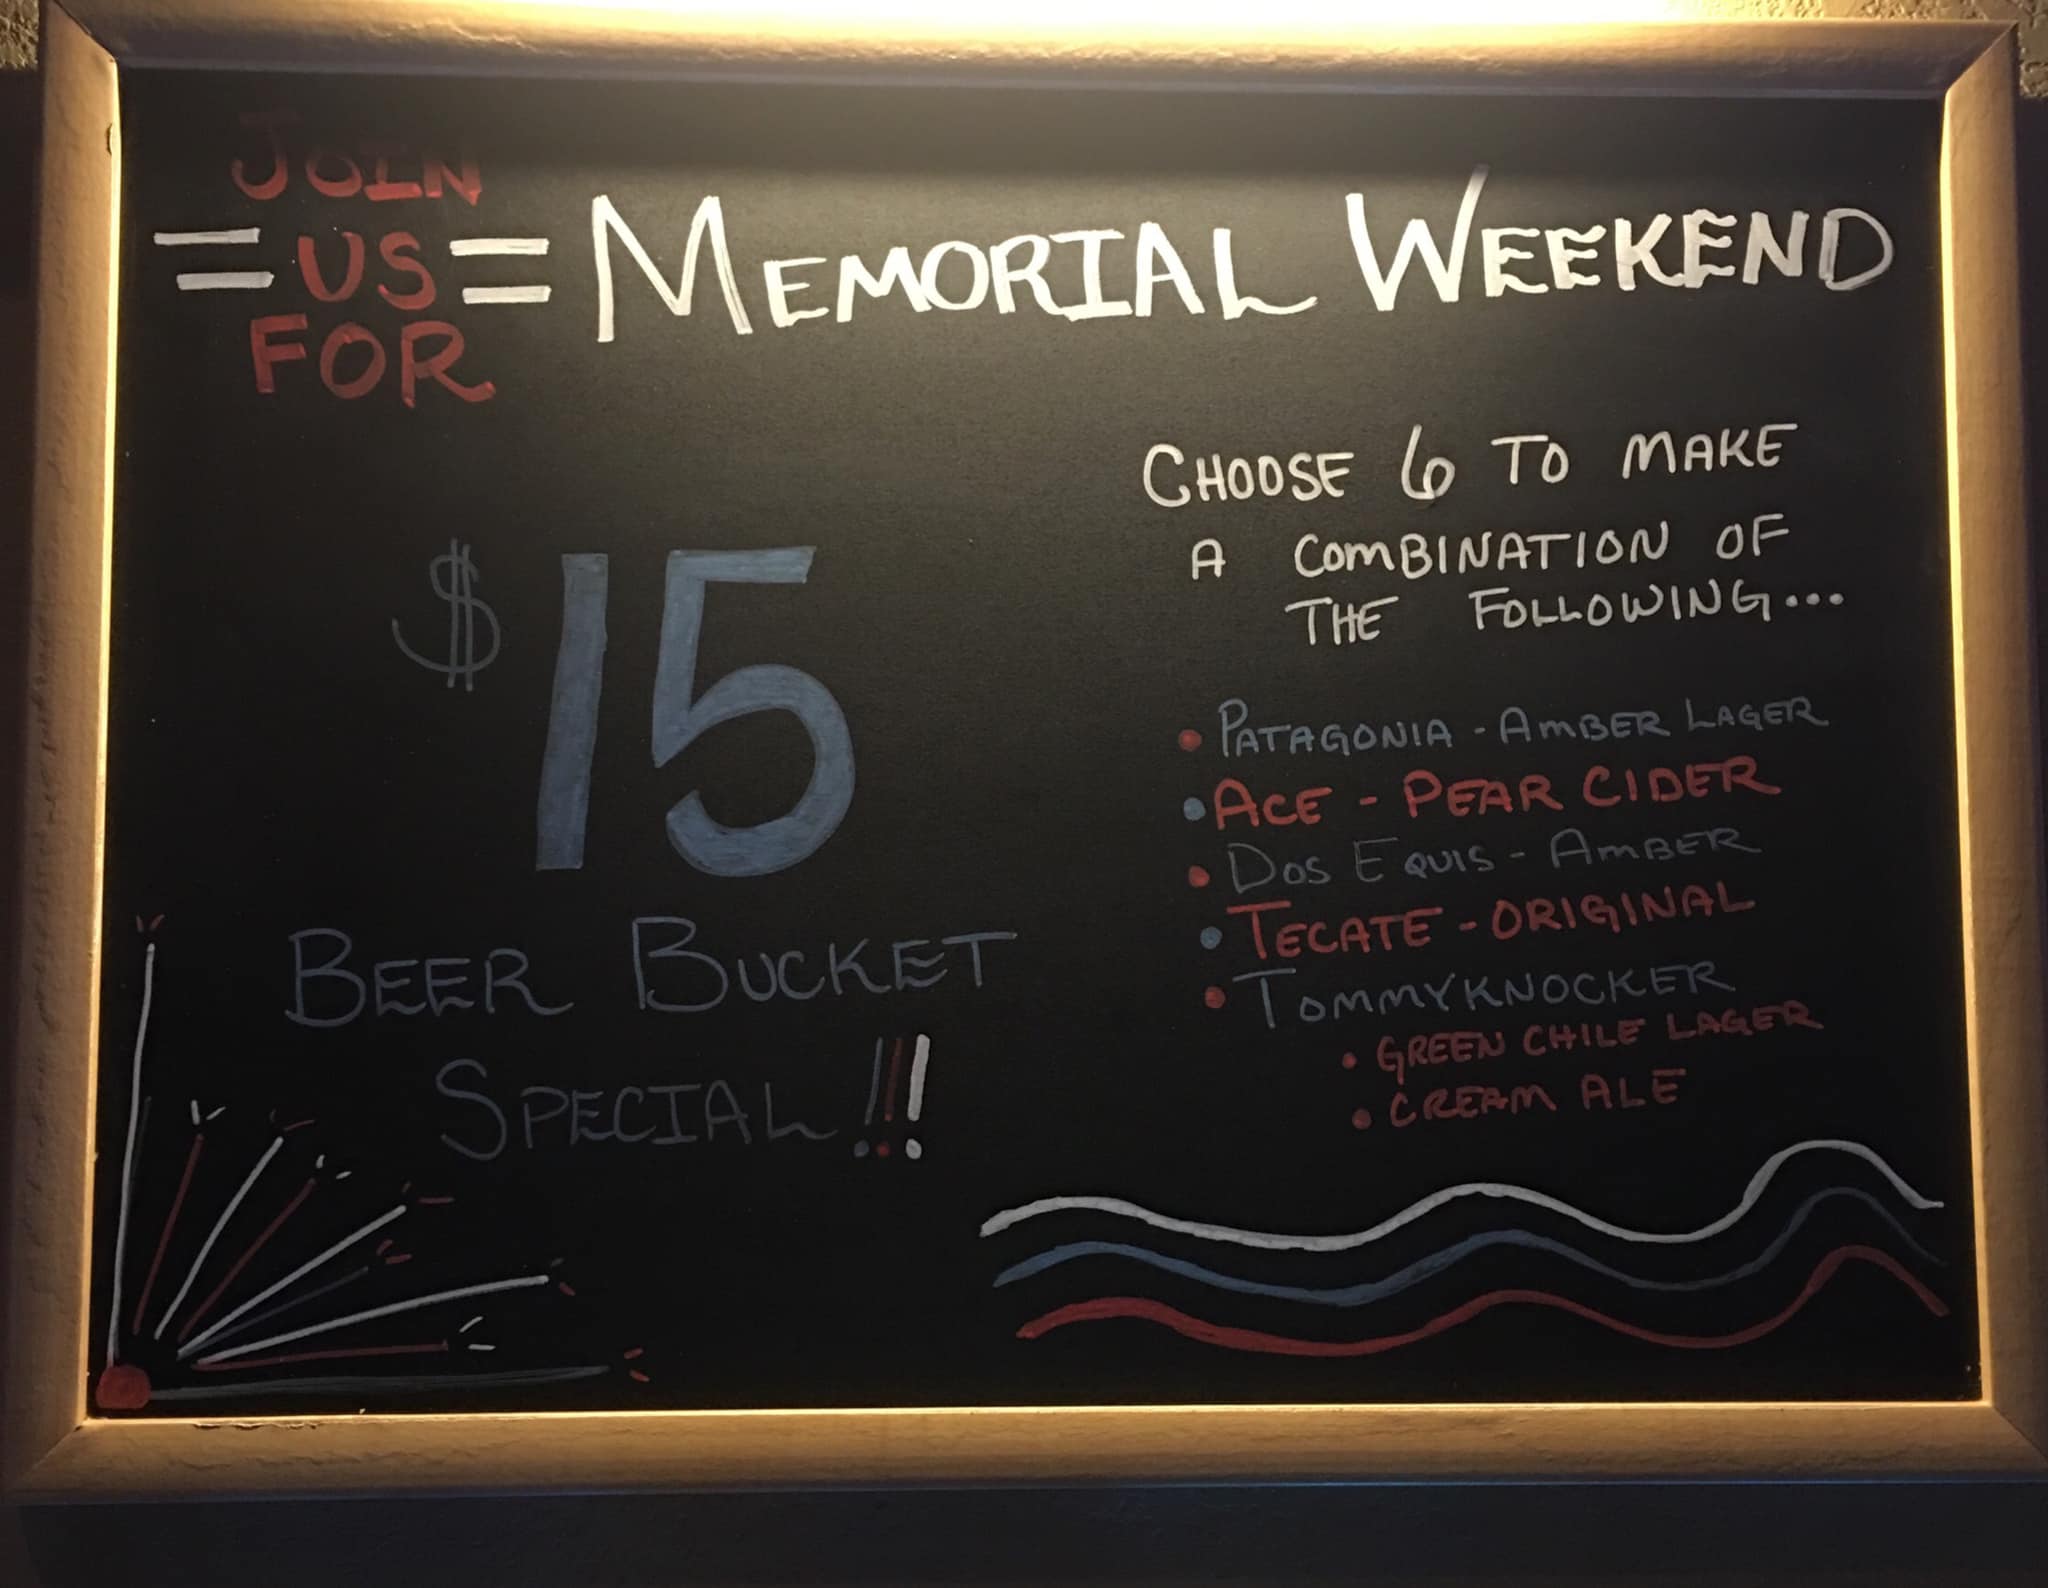 JOIN
= US = MEMORIAL WEEKEND
FOR
$15
BEER BUCKET
SPECIAL!!!
CHOOSE 6 TO MAKE
A COMBINATION OF
THE FOLLOWING...
• PATAGONIA - AMBER LAGER
• ACE - PEAR CIDER
• DOS EQUIS - AMBER
• TECATE - ORIGINAL
• TOMMYKNOCKER
• GREEN CHILE LAGER
• CREAM ALE